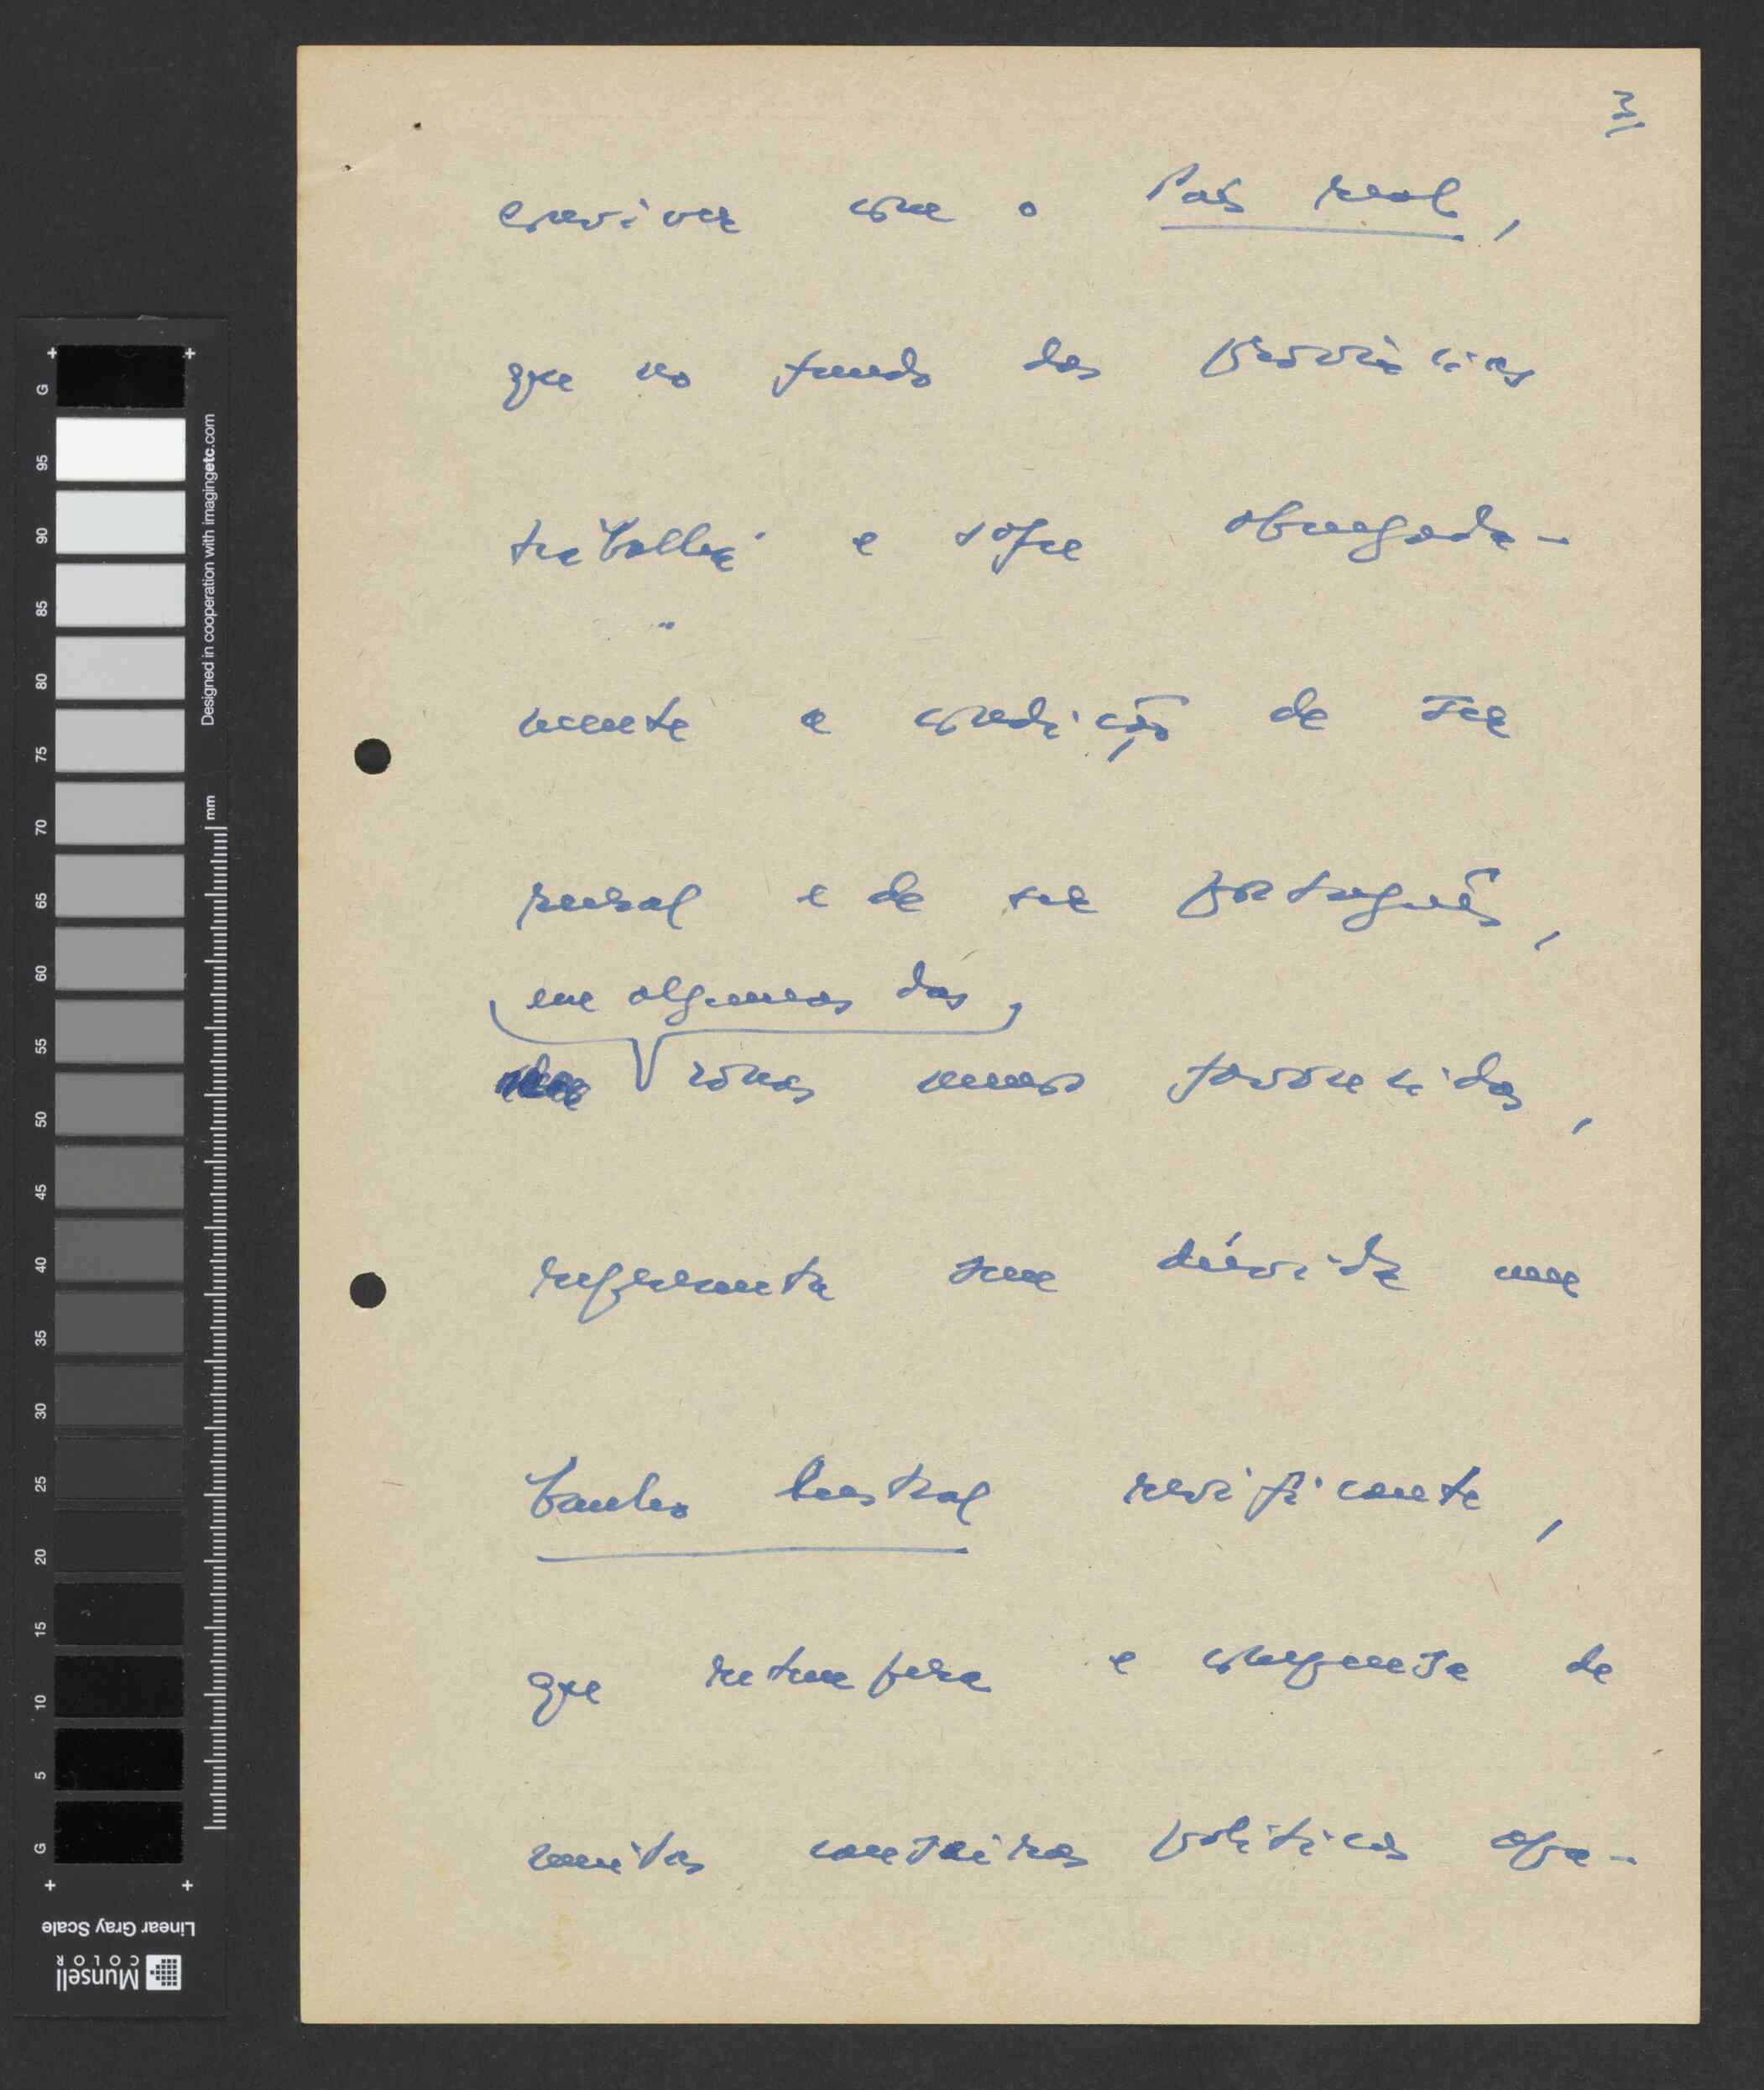 3
conviver com o País real,
que no fundo das províncias
trabalha e sofre abnegada-
mente a condição de ser
rural e de ser português,
em algumas das
zonas menos favorecidas,
representa sem dúvida um
banho lustral revificante,
que retempera e compensa de
muitas canseiras políticas apa-
G
95
90
85
80
75
70
65
60
55
50
45
40
35
30
25
20
15
10
5
G
Designed in cooperation with imagingetc.com
mm
Linear Gray Scale
Munsell
COLOR